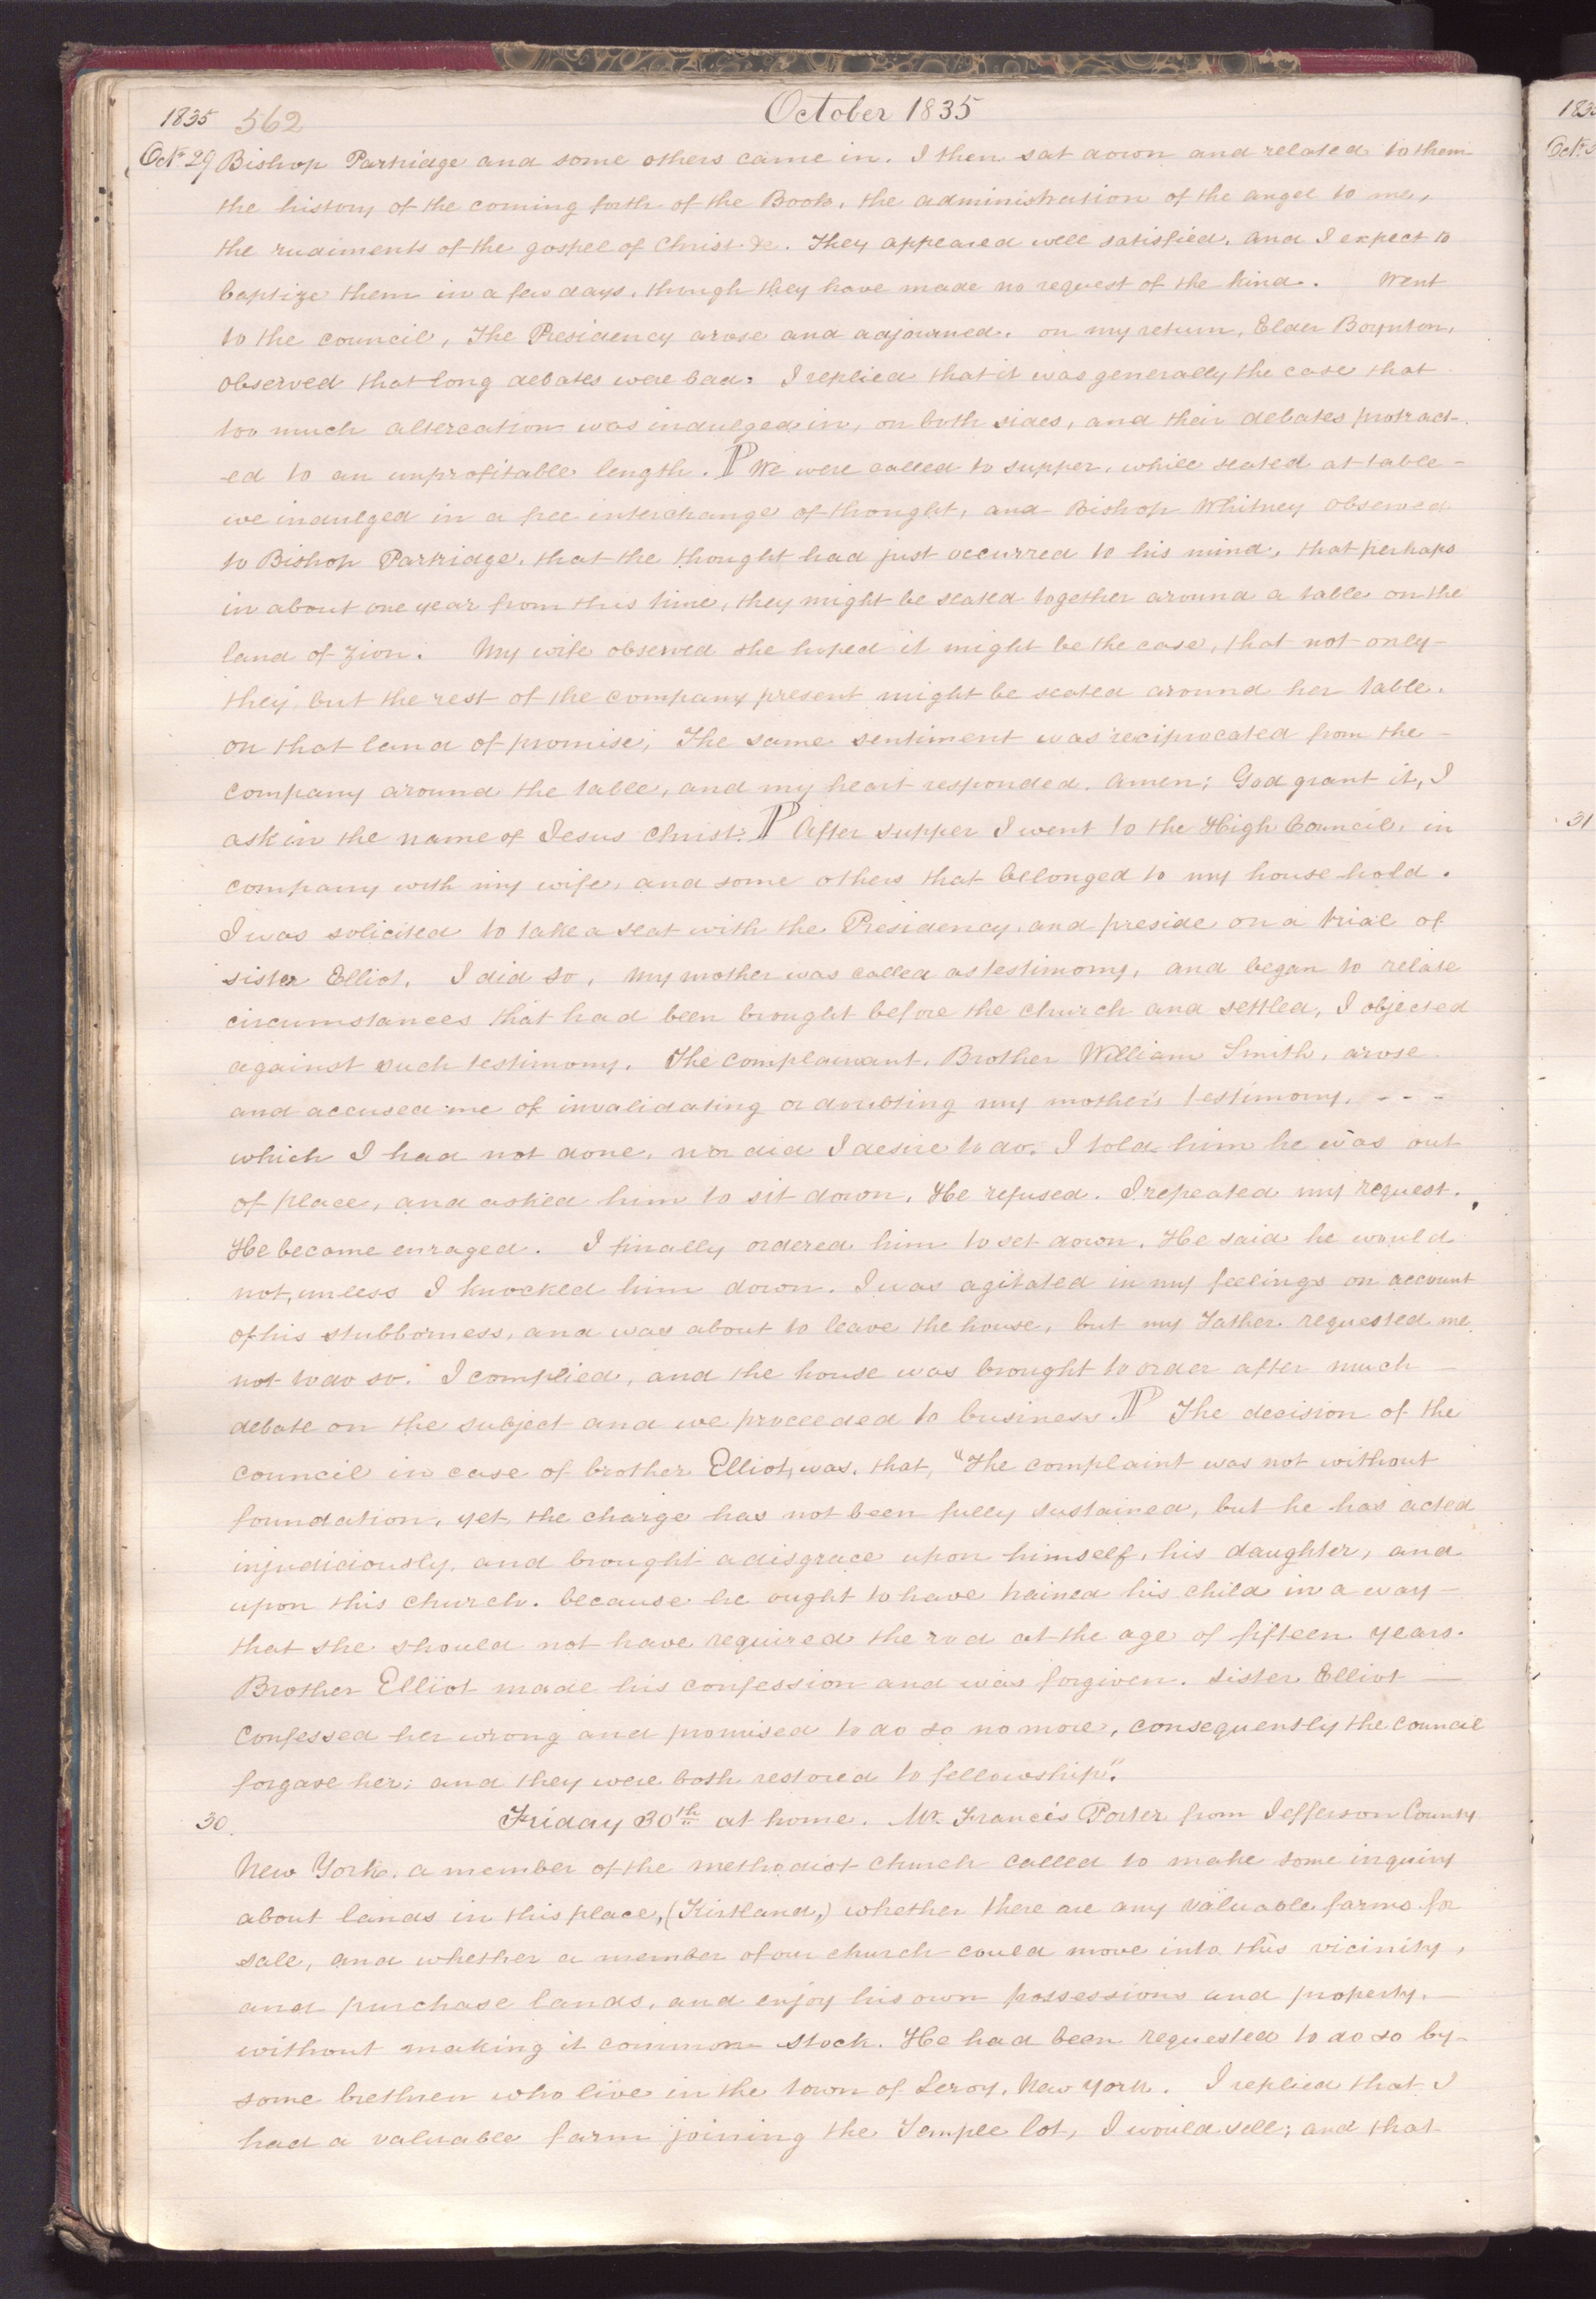 October 1835
1835 562
Oct. 29 Bishop Partridge and some others came in. I then sat down and related to them
the history of the coming forth of the Book, the administration of the angel to me,
the rudiments of the gospel of Christ &c. They appeared well satisfied, and I expect to
baptize them in a few days, though they have made no request of the kind. Went
to the council, The Presidency arose and adjourned. on my return, Elder Boynton,
observed that long debates were bad. I replied that it was generally the case that
too much altercation was indulged in, on both sides, and their debates protract-
-ed to an unprofitable length. ¶ We were called to supper, while seated at table-
we indulged in a free interchange of thought, and Bishop Whitney observed
to Bishop Partridge, that the thought had just occurred to his mind, that perhaps
in about one year from this time, they might be seated together around a table on the
land of Zion. My wife observed she hoped it might be the case, that not only-
they, but the rest of the company present might be seated around her table,
on that land of promise; The same sentiment was reciprocated from the-
company around the table, and my heart responded. amen; God grant it, I
ask in the name of Jesus Christ. ¶ After supper I went to the High Council, in
company with my wife, and some others that belonged to my house hold.
I was solicited to take a seat with the Presidency, and preside on a trial of
sister Elliot, I did so, My mother was called as testimony, and began to relate
circumstances that had been brought before the church and settled, I objected
against such testimony. The complainant, Brother William Smith, arose
and accused me of invalidating or doubting my mother's testimony, - - -
which I had not done, nor did I desire to do. I told him he was out
of place, and asked him to sit down, He refused. I repeated my request.
He became enraged. I finally ordered him to set down. He said he would
not, unless I knocked him down. I was agitated in my feelings on account
of his stubborness, and was about to leave the house, but my Father requested me
not to do so. I complied, and the house was brought to order after much-
debate on the subject and we proceeded to business. ¶ The decision of the
council in case of brother Elliot, was, that, "The complaint was not without
foundation, yet, the charge has not been fully sustained, but he has acted
injudiciously, and brought a disgrace upon himself, his daughter, and
upon this church. because he ought to have trained his child in a way-
that she should not have required the rod at the age of fifteen years.
Brother Elliot made his confession and was forgiven. Sister Elliot-
Confessed her wrong and promised to do so no more, consequently the council
forgave her; and they were both restored to fellowship".
30. Friday 30th at home. Mr. Francis Porter from Jefferson County
New York. a member of the methodist church called to make some inquiry
about lands in this place, (Kirtland,) whether there are any valuable farms for
sale, and whether a member of our church could move into this vicinity,
and purchase lands, and enjoy his own possessions and property,-
without making it common stock. He had been requested to do so by-
some brethren who live in the town of Leroy, New York. I replied that I
had a valuable farm joining the Temple lot, I would sell; and that
31